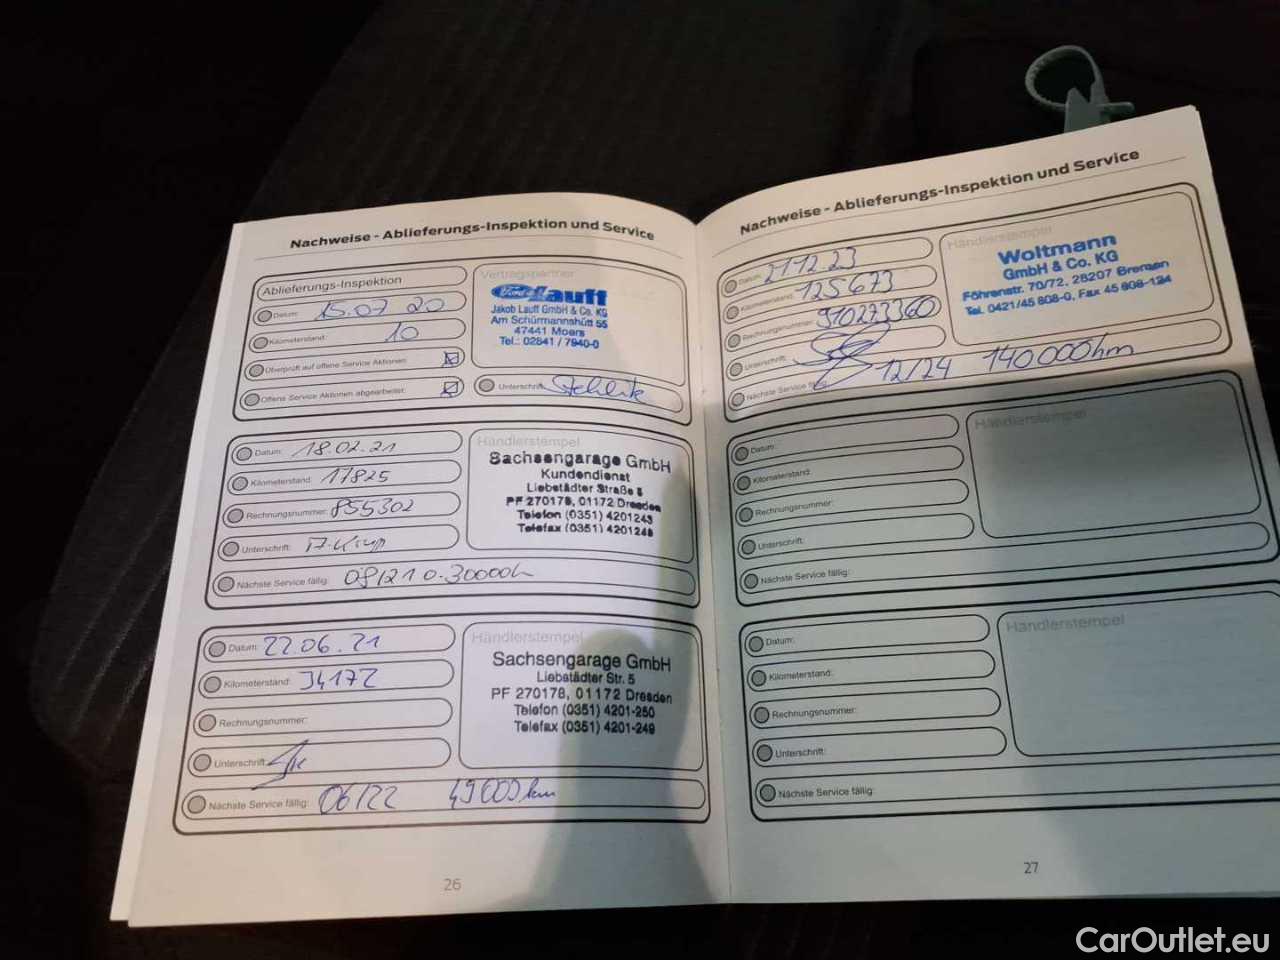 Nachweise - Ablieferungs-Inspektion und Service
Ablieferungs-Inspektion
Datum: 15.07 20
Kilometerstand: 10
Überprüft auf offene Service Aktionen:
Offene Service Aktionen abgearbeitet:
Vertragspartner
Ford Lauff
Jakob Lauff GmbH & Co. KG
Am Schürmannshütt 55
47441 Moers
Tel.: 02841 / 7940-0
Unterschrift:
Datum: 18.02.21
Kilometerstand: 17825
Rechnungsnummer: 855302
Unterschrift:
Nächste Service fällig: 08/21 o. 30000
Händlerstempel
Sachsengarage GmbH
Kundendienst
Liebstädter Straße 5
PF 270178, 01172 Dresden
Telefon (0351) 4201243
Telefax (0351) 4201249
Datum: 22.06.21
Kilometerstand: 34172
Rechnungsnummer:
Unterschrift:
Nächste Service fällig: 06/22 49000km
Händlerstempel
Sachsengarage GmbH
Liebstädter Str. 5
PF 270178, 01172 Dresden
Telefon (0351) 4201-250
Telefax (0351) 4201-249
26
Nachweise - Ablieferungs-Inspektion und Service
Datum: 21.12.23
Kilometerstand: 125673
Rechnungsnummer: 910273360
Unterschrift:
Nächste Service fällig: 12/24 140000km
Händlerstempel
Woltmann
GmbH & Co. KG
Föhrenstr. 70/72, 28207 Bremen
Tel. 0421/45 808-0, Fax 45 808-124
Datum:
Kilometerstand:
Rechnungsnummer:
Unterschrift:
Nächste Service fällig:
Händlerstempel
Datum:
Kilometerstand:
Rechnungsnummer:
Unterschrift:
Nächste Service fällig:
Händlerstempel
27
CarOutlet.eu